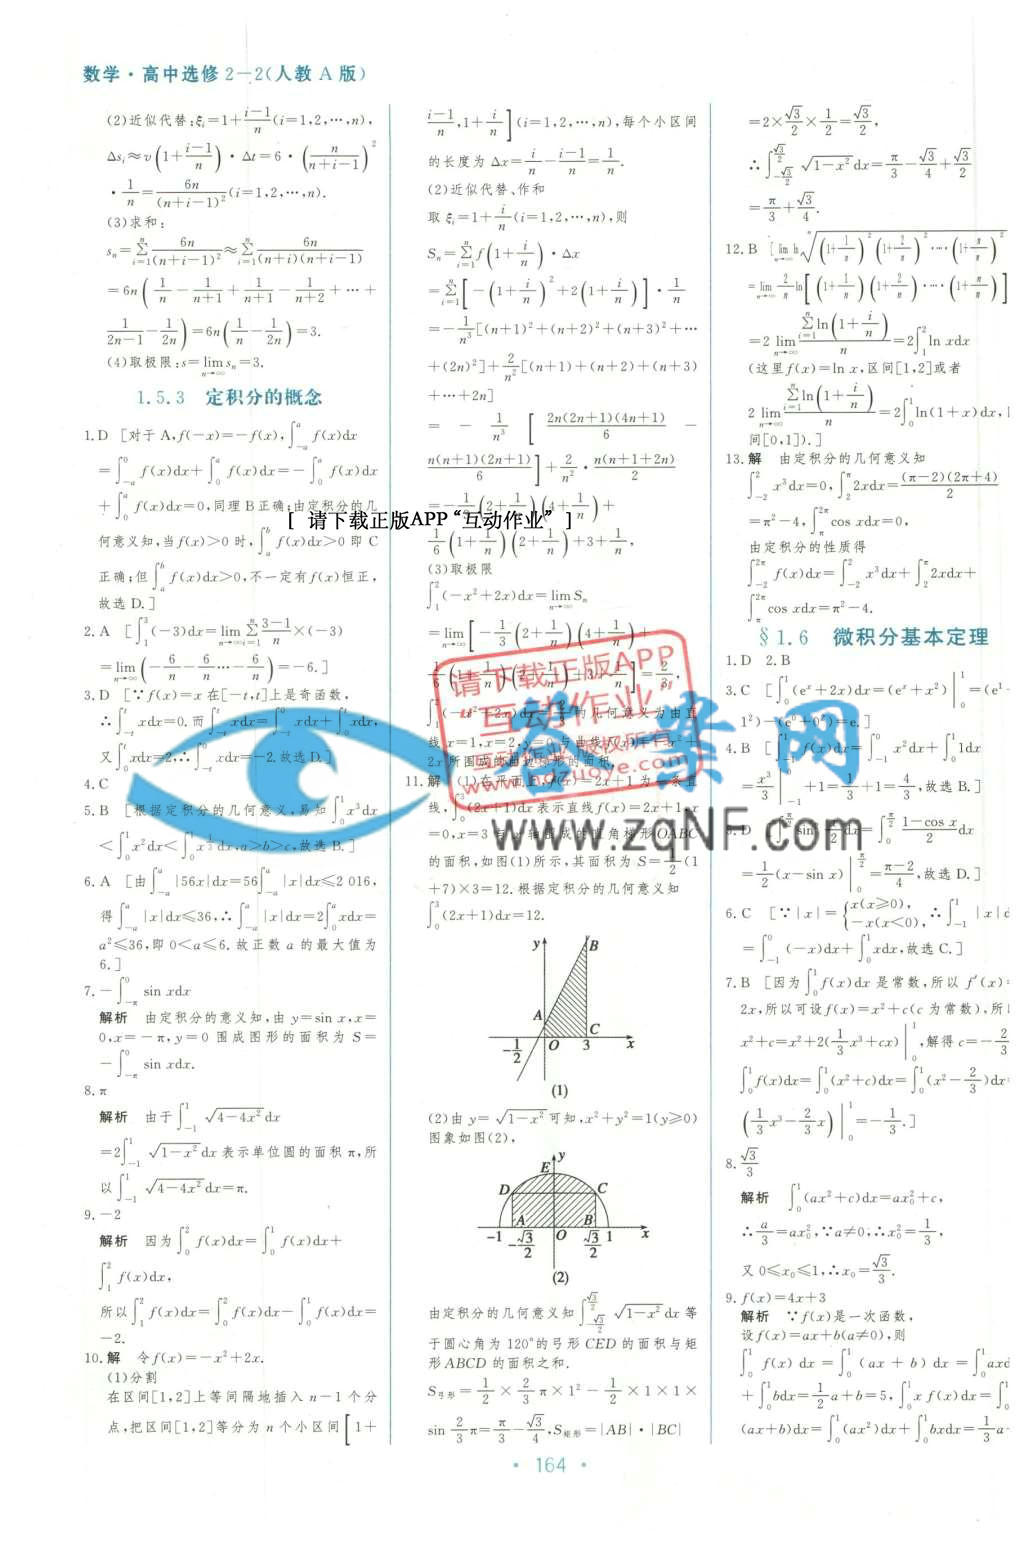 数学·高中选修2-2(人教A版)
(2)近似代替:ξᵢ=1+(i-1)/n(i=1,2,…,n),
Δsᵢ≈v(1+(i-1)/n)·Δt=6·(n/(n+i-1))²
·1/n=6n/(n+i-1)²(i=1,2,…,n).
(3)求和:
sₙ=∑ᵢ₌₁ⁿ6n/(n+i-1)²≈∑ᵢ₌₁ⁿ6n/((n+i)(n+i-1))
=6n(1/n-1/(n+1)+1/(n+1)-1/(n+2)+…+
1/(2n-1)-1/(2n))=6n(1/n-1/(2n))=3.
(4)取极限:s=lim(n→∞)sₙ=3.
1.5.3 定积分的概念
1.D [对于A,f(-x)=-f(x),∫₋ₐᵃf(x)dx
=∫₋ₐ⁰f(x)dx+∫₀ᵃf(x)dx=-∫₀ᵃf(x)dx
+∫₀ᵃf(x)dx=0,同理B正确;由定积分的几
何意义知,当f(x)>0时,∫ₐᵇf(x)dx>0即C
正确;但∫ₐᵇf(x)dx>0,不一定有f(x)恒正,
故选D.]
2.A [∫₁³(-3)dx=lim(n→∞)∑ᵢ₌₁ⁿ(3-1)/n×(-3)
=lim(n→∞)(-6/n-6/n-…-6/n)=-6.]
3.D [∵f(x)=x在[-t,t]上是奇函数,
∴∫₋ₜᵗxdx=0.而∫₋ₜᵗxdx=∫₋ₜ⁰xdx+∫₀ᵗxdx,
又∫₀ᵗxdx=2,∴∫₋ₜ⁰xdx=-2.故选D.]
4.C
5.B [根据定积分的几何意义,易知∫₀¹x³dx
<∫₀¹x²dx<∫₀¹x^(1/3)dx,a>b>c,故选B.]
6.A [由∫₋ₐᵃ|56x|dx=56∫₋ₐᵃ|x|dx≤2 016,
得∫₋ₐᵃ|x|dx≤36,∴∫₋ₐᵃ|x|dx=2∫₀ᵃxdx=
a²≤36,即0<a≤6.故正数a的最大值为
6.]
7.-∫₋π⁰sin xdx
解析 由定积分的意义知,由y=sin x,x=
0,x=-π,y=0围成图形的面积为S=
-∫₋π⁰sin xdx.
8.π
解析 由于∫₋₁¹√(4-4x²)dx
=2∫₋₁¹√(1-x²)dx表示单位圆的面积π,所
以∫₋₁¹√(4-4x²)dx=π.
9.-2
解析 因为∫₀²f(x)dx=∫₀¹f(x)dx+
∫₁²f(x)dx,
所以∫₁²f(x)dx=∫₀²f(x)dx-∫₀¹f(x)dx=
-2.
10.解 令f(x)=-x²+2x.
(1)分割
在区间[1,2]上等间隔地插入n-1个分
点,把区间[1,2]等分为n个小区间[1+
(i-1)/n,1+i/n](i=1,2,…,n),每个小区间
的长度为Δx=i/n-(i-1)/n=1/n.
(2)近似代替、作和
取ξᵢ=1+i/n(i=1,2,…,n),则
Sₙ=∑ᵢ₌₁ⁿf(1+i/n)·Δx
=∑ᵢ₌₁ⁿ[-(1+i/n)²+2(1+i/n)]·1/n
=-1/n³[(n+1)²+(n+2)²+(n+3)²+…
+(2n)²]+2/n²[(n+1)+(n+2)+(n+3)
+…+2n]
=-1/n³[2n(2n+1)(4n+1)/6-
n(n+1)(2n+1)/6]+2/n²·n(n+1+2n)/2
=-1/3(2+1/n)(4+1/n)+
1/6(1+1/n)(2+1/n)+3+1/n,
(3)取极限
∫₁²(-x²+2x)dx=lim(n→∞)Sₙ
=lim(n→∞)[-1/3(2+1/n)(4+1/n)+
1/6(1+1/n)(2+1/n)+3+1/n]=2/3,
∫₁²(-x²+2x)dx=2/3的几何意义为由直
线x=1,x=2,y=0与曲线f(x)=-x²+
2x所围成的曲边梯形的面积.
11.解 (1)在平面上,f(x)=2x+1为一条直
线,∫₀³(2x+1)dx表示直线f(x)=2x+1,x
=0,x=3与x轴围成的直角梯形OABC
的面积,如图(1)所示,其面积为S=1/2(1
+7)×3=12.根据定积分的几何意义知
∫₀³(2x+1)dx=12.
y B
A C
-1/2 O 3 x
(1)
(2)由y=√(1-x²)可知,x²+y²=1(y≥0)
图象如图(2),
E y
D C
A B
-1 -√3/2 O √3/2 1 x
(2)
由定积分的几何意义知∫_{-√3/2}^{√3/2}√(1-x²)dx等
于圆心角为120°的弓形CED的面积与矩
形ABCD的面积之和.
S弓形=1/2×2/3π×1²-1/2×1×1×
sin 2/3π=π/3-√3/4,S矩形=|AB|·|BC|
=2×√3/2×1/2=√3/2,
∴∫_{-√3/2}^{√3/2}√(1-x²)dx=π/3-√3/4+√3/2
=π/3+√3/4.
12.B [lim(n→∞)ln ⁿ√((1+1/n)²(1+2/n)²·…·(1+n/n)²
=lim(n→∞)2/n ln[(1+1/n)(1+2/n)·…·(1+n/n)]
=2lim(n→∞)∑ᵢ₌₁ⁿln(1+i/n)/n=2∫₁²ln xdx
(这里f(x)=ln x,区间[1,2]或者
2lim(n→∞)∑ᵢ₌₁ⁿln(1+i/n)/n=2∫₀¹ln(1+x)dx,
间[0,1]).]
13.解 由定积分的几何意义知
∫₋₂²x³dx=0,∫₂^{2π}2xdx=(π-2)(2π+4)/2
=π²-4,∫₀^{2π}cos xdx=0,
由定积分的性质得
∫₋₂^{2π}f(x)dx=∫₋₂²x³dx+∫₂^{2π}2xdx+
∫₂^{2π}cos xdx=π²-4.
§1.6 微积分基本定理
1.D 2.B
3.C [∫₀¹(eˣ+2x)dx=(eˣ+x²)|₀¹=(e¹+
1²)-(e⁰+0²)=e.]
4.B [∫₋₁¹f(x)dx=∫₋₁⁰x²dx+∫₀¹1dx
=x³/3|₋₁⁰+1=1/3+1=4/3,故选B.]
5.D [∫₀^{π/2}sin²x/2dx=∫₀^{π/2}(1-cos x)/2dx
=1/2(x-sin x)|₀^{π/2}=(π-2)/4,故选D.]
6.C [∵|x|={x(x≥0),
-x(x<0),∴∫₋₁¹|x|d
=∫₋₁⁰(-x)dx+∫₀¹xdx,故选C.]
7.B [因为∫₀¹f(x)dx是常数,所以f′(x)=
2x,所以可设f(x)=x²+c(c为常数),所
x²+c=x²+2(1/3x³+cx)|₀¹,解得c=-2/3
∫₀¹f(x)dx=∫₀¹(x²+c)dx=∫₀¹(x²-2/3)dx=
(1/3x³-2/3x)|₀¹=-1/3.]
8.√3/3
解析 ∫₀¹(ax²+c)dx=ax₀²+c,
∴a/3=ax₀²,∵a≠0,∴x₀²=1/3,
又0≤x₀≤1,∴x₀=√3/3.
9.f(x)=4x+3
解析 ∵f(x)是一次函数,
设f(x)=ax+b(a≠0),则
∫₀¹f(x)dx=∫₀¹(ax+b)dx=∫₀¹axd
+∫₀¹bdx=1/2a+b=5,∫₀¹xf(x)dx=∫₀¹
(ax+b)dx=∫₀¹(ax²)dx+∫₀¹bxdx=1/3a
·164·
[ 请下载正版APP“互动作业” ]
请下载正版APP
“互动作业”
互动作业 版权所有
www.hdzuoye.com
答案网
www.zqNF.com